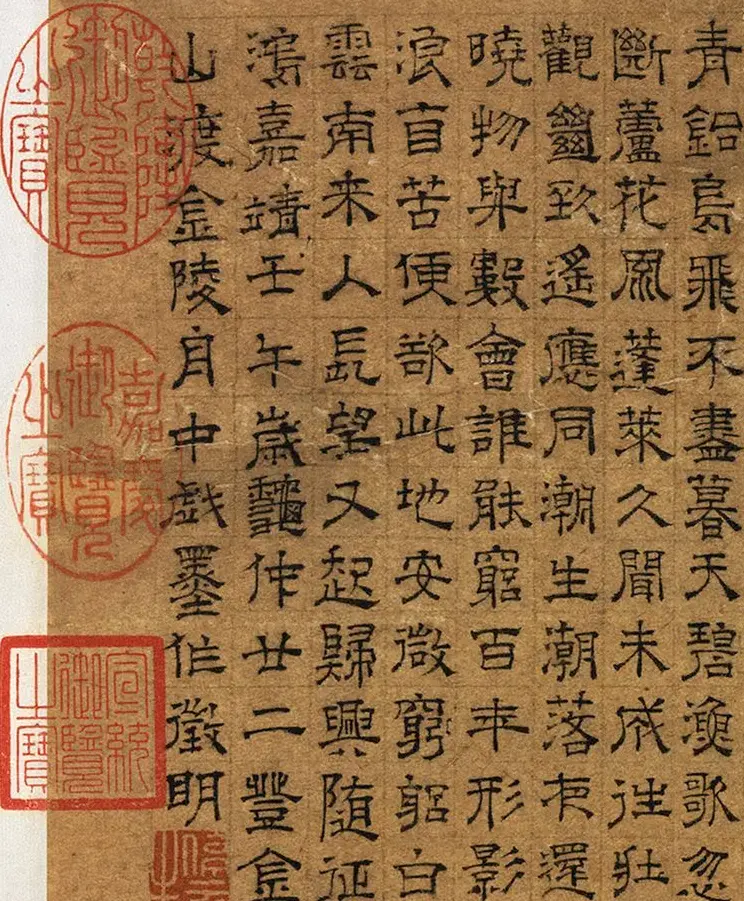 青鉛鳥飛不盡暮天碧漁歌忽
斷蘆花風蓬萊久聞未成往壯
觀𢇍致遙應同潮生潮落夜還
曉物與數會誰能窮百年形影
浪自苦便欲此地安微白
雲南来入長望又起歸興隨征
鴻嘉靖壬午歲龝仲廿二豊金
山渡金陵舟中戲墨作徵明
乾隆御覽之寶
嘉慶御覽之寶
宣統御覽之寶